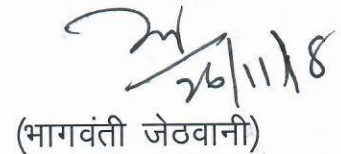 26/11/18
(भागवंती जेठवानी)